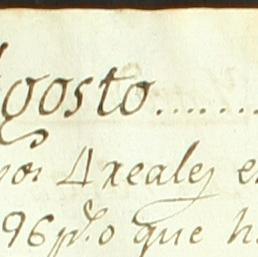 Agosto........
4 reales e
96 p.o que h